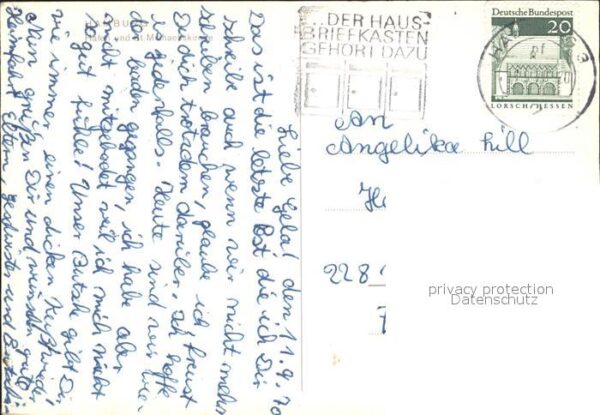 HAMBURG
Hafen und St. Michaeliskirche
Liebe Gela! den 11.9.70
Das ist die letzte Post die ich Dir
schreibe auch wenn wir nicht mehr
schreiben brauchen, glaube ich freust
Du dich trotzdem darüber. Ich hoffe
es jedenfalls. Heute sind wir wie
baden gegangen, ich habe aber
nicht mitgebadet weil ich mich nicht
gut fühle! Unser Butsch gibt Dir
wie immer einen dicken Kuß wieder
Nun grüßen Dir und wünschen gute
Heimfahrt Eltern Geschwister und
...DER HAUS-
BRIEFKASTEN
GEHÖRT DAZU
Deutsche Bundespost
20
LORSCH/HESSEN
An
Angelika Lill
228
privacy protection
Datenschutz